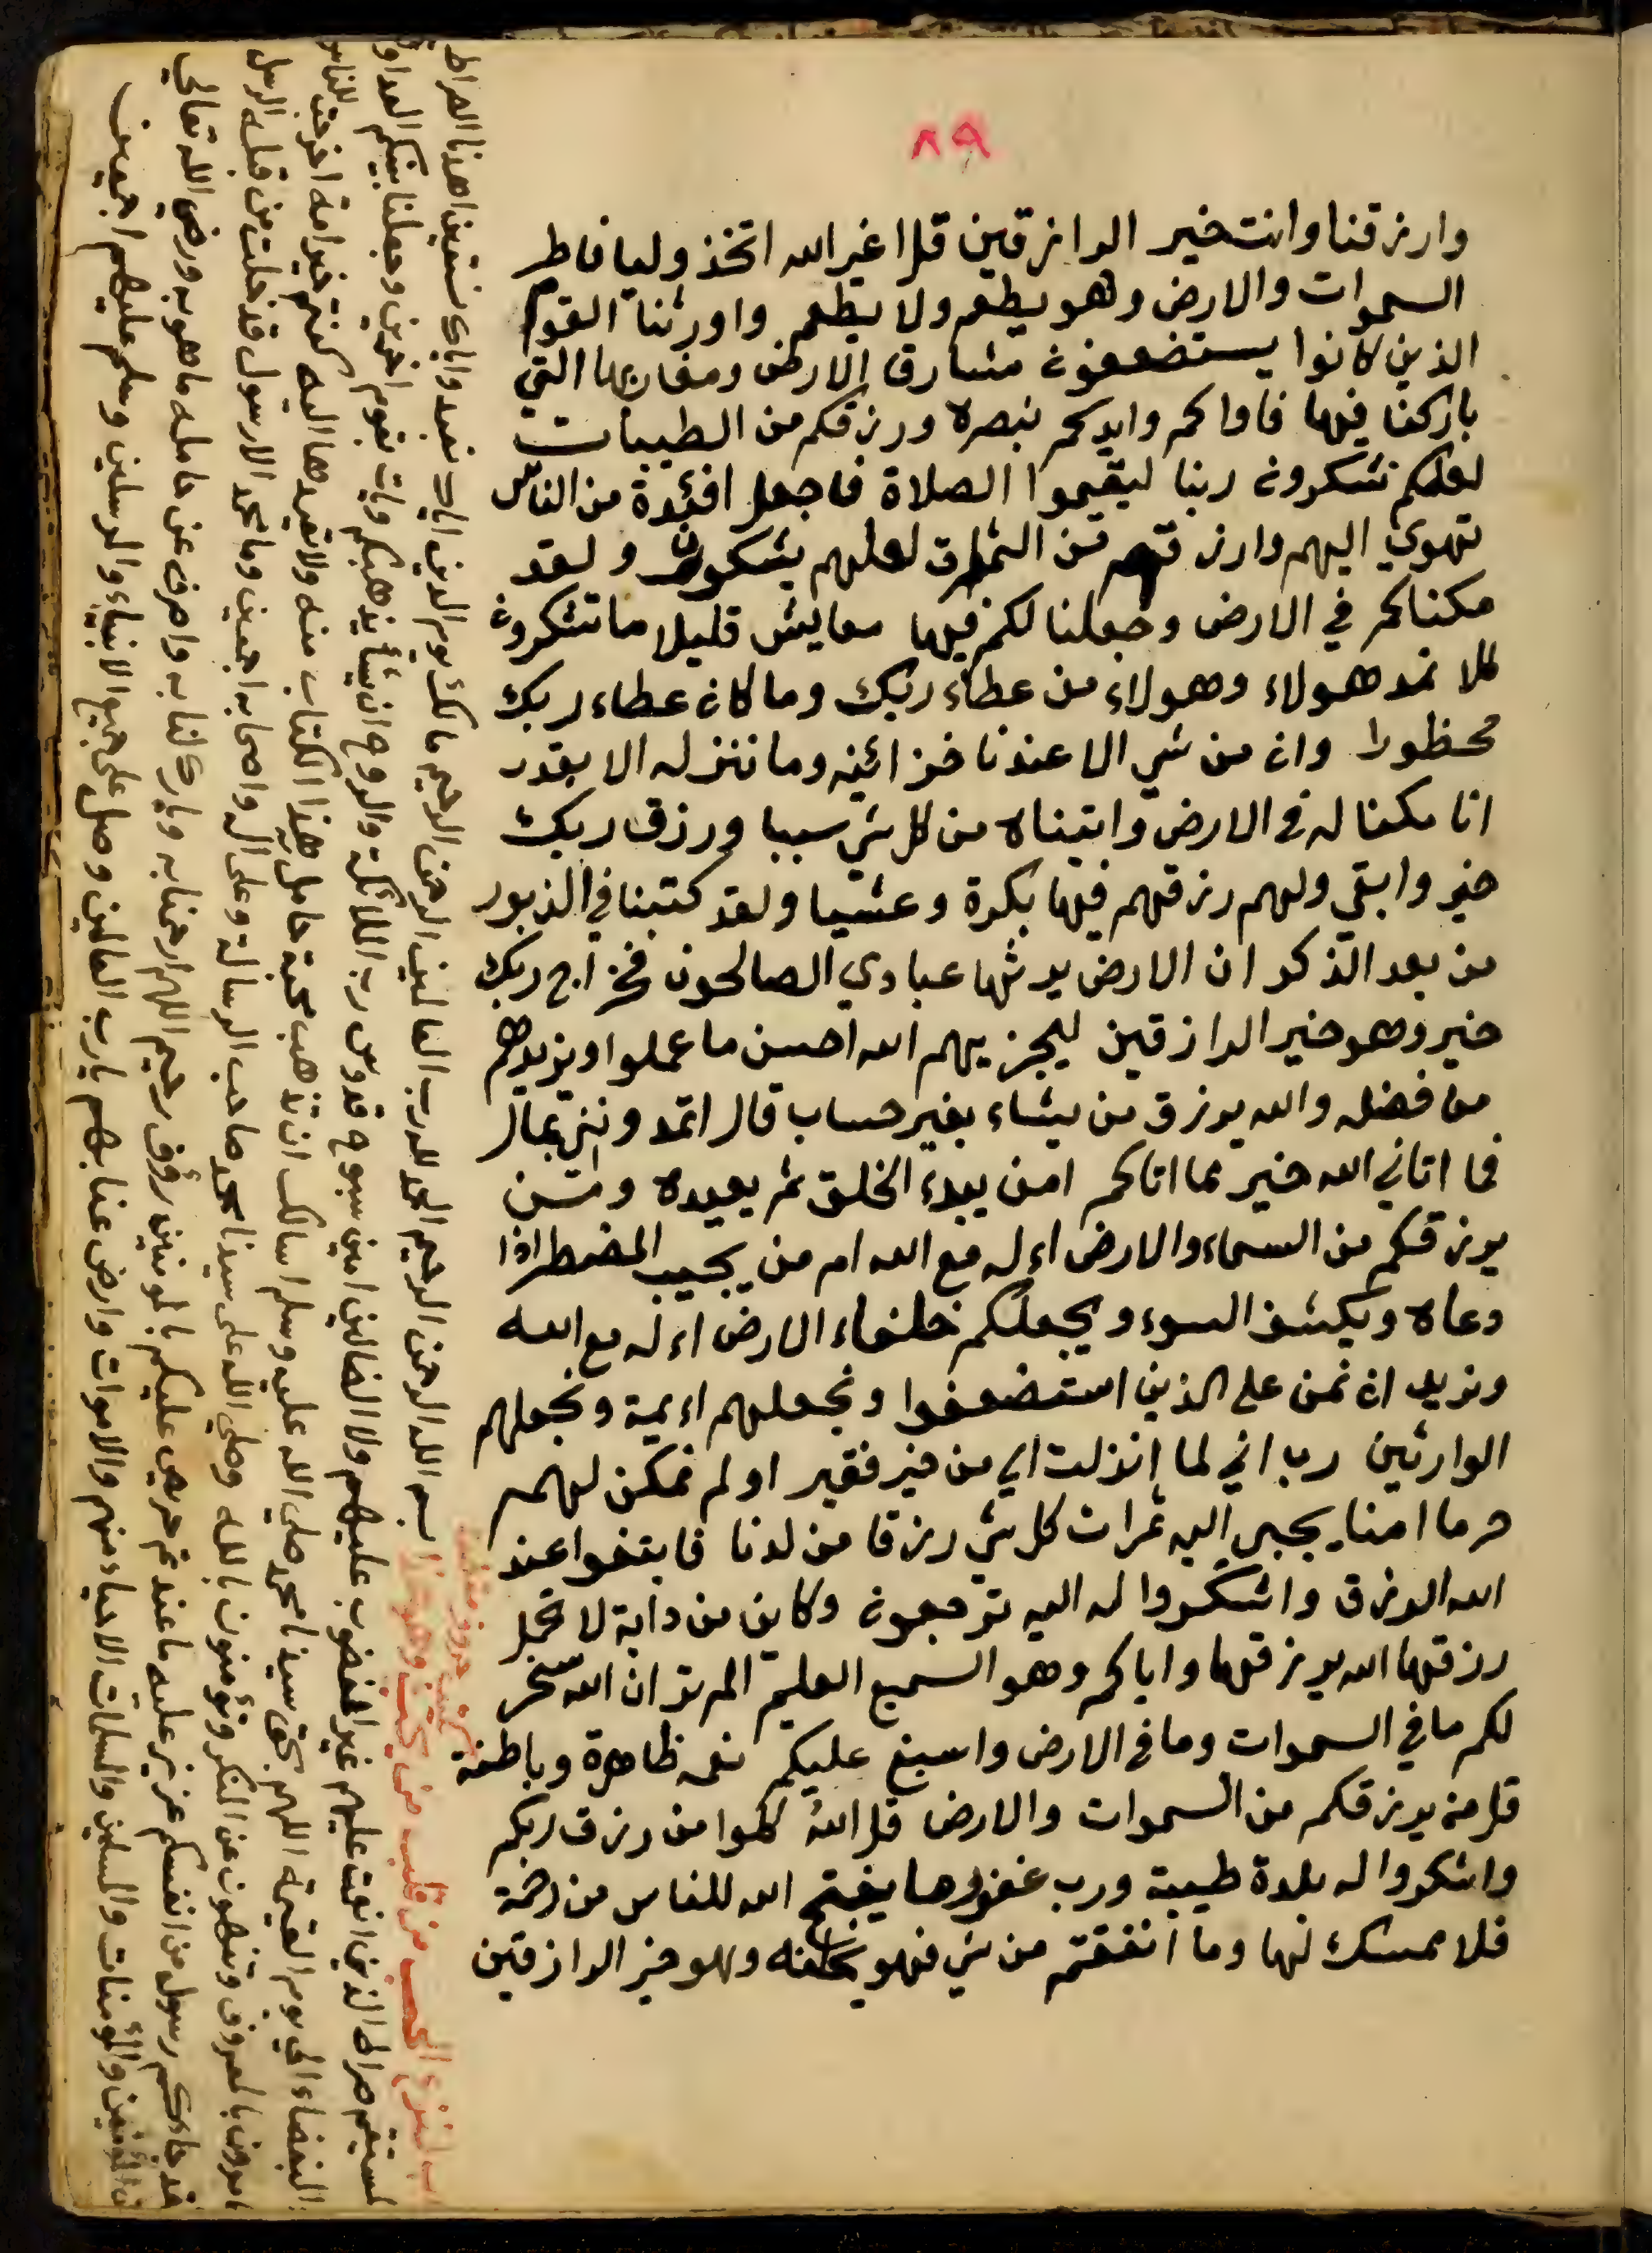 ٨٩
وارزقنا وانت خير الرازقين قل اغير الله اتخذ وليا فاطر
السموات والارض وهو يطعم ولا يطعم واورثنا القوم
الذين كانوا يستضعفون مشارق الارض ومغاربها التي
باركنا فيها فاواكم وايدكم بنصره ورزقكم من الطيبات
لعلكم تشكرون ربنا ليقيموا الصلاة فاجعل افئدة من الناس
تهوي اليهم وارزقهم من الثمرات لعلهم يشكرون ولقد
مكناكم في الارض وجعلنا لكم فيها معايش قليلا ما تشكرون
كلا نمد هولاء وهولاء من عطاء ربك وما كان عطاء ربك
محظورا وان من شي الا عندنا خزائنه وما ننزله الا بقدر
انا مكنا له في الارض واتيناه من كل شي سببا ورزق ربك
خير وابقي ولهم رزقهم فيها بكرة وعشيا ولقد كتبنا في الزبور
من بعد الذكر ان الارض يرثها عبادي الصالحون فخراج ربك
خير وهو خير الرازقين ليجزيهم الله احسن ما عملوا ويزيدهم
من فضله والله يرزق من يشاء بغير حساب قال اتمدونني بمال
فما اتاني الله خير مما اتاكم امن يبدء الخلق ثم يعيده ومن
يرزقكم من السماء والارض اءله مع الله ام من يجيب المضطر اذا
دعاه ويكشف السوء ويجعلكم خلفاء الارض اءله مع الله
ونريد ان نمن على الذين استضعفوا ونجعلهم اءيمة ونجعلهم
الوارثين رب اني لما انزلت الي من خير فقير اولم نمكن لهم
حرما امنا يجبي اليه ثمرات كل شي رزقا من لدنا فابتغوا عند
الله الرزق واشكروا له اليه ترجعون وكاين من دابة لا تحمل
رزقها الله يرزقها واياكم وهو السميع العليم الم تر ان الله سخر
لكم ما في السموات وما في الارض واسبغ عليكم نعمه ظاهرة وباطنة
قل من يرزقكم من السموات والارض قل الله كلوا من رزق ربكم
واشكروا له بلدة طيبة ورب غفور ما يفتح الله للناس من رحمة
فلا ممسك لها وما انفقتم من شي فهو يخلفه وهو خير الرازقين
بسم الله الرحمن الرحيم الحمد لله رب العالمين الرحمن الرحيم مالك يوم الدين اياك نعبد واياك نستعين اهدنا الصراط
المستقيم صراط الذين انعمت عليهم غير المغضوب عليهم ولا الضالين امين سبوح قدوس رب الملائكة والروح ان يشأ يذهبكم ويات بقوم اخرين وجعلنا بينكم العداوة
والبغضاء الي يوم القيمة اللهم بحق سيدنا محمد صلي الله عليه وسلم اسالك ان تذهب محبة حامل هذا الكتاب منه ولا تعيدها اليه كنتم خير امة اخرجت للناس
تامرون بالمعروف وتنهون عن المنكر وتؤمنون بالله وصلي الله على سيدنا محمد صاحب الرسالة وعلى ال واصحابه اجمعين وما محمد الا رسول قد خلت من قبله الرسل
لقد جاءكم رسول من انفسكم عزيز عليه ما عنتم حريص عليكم بالمومنين رؤف رحيم اللهم ارحمنا به وبارك لنا به واصرف عن حامله ما هو به ورضي الله تعالي
عن المؤمنين والمؤمنات والمسلمين والمسلمات الاحياء منهم والاموات وارض عنا بهم يارب العالمين وصل على جميع الانبياء والمرسلين وسلم عليهم اجمعين